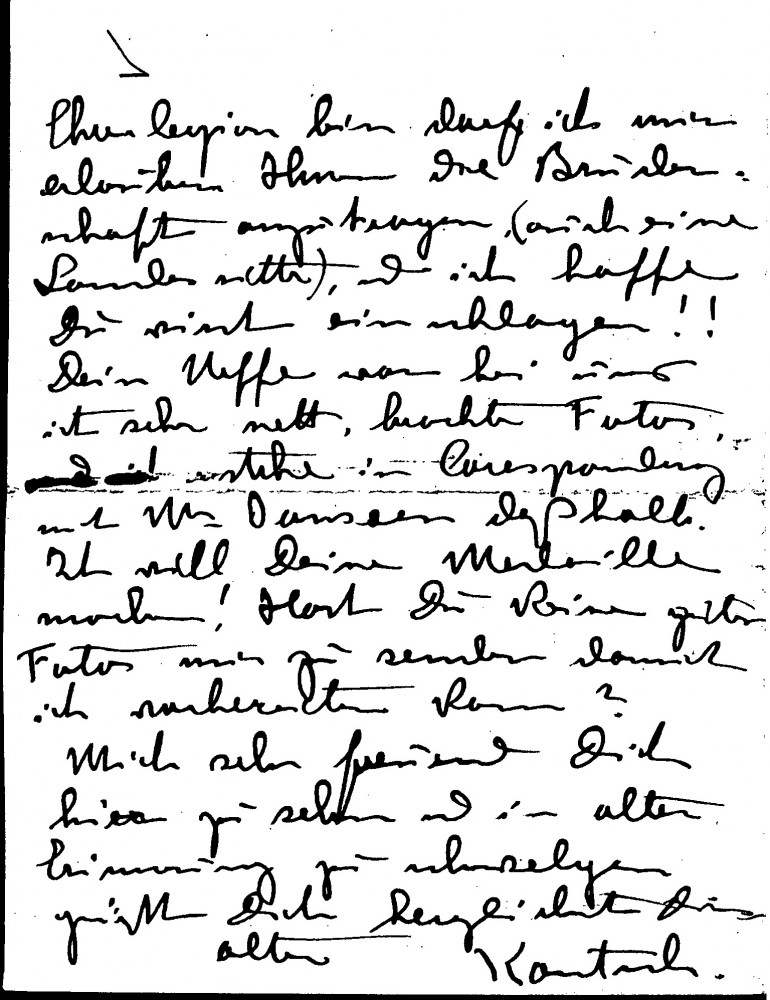 Ehrenlegion bin darf ich mir
erlauben Ihnen die Bruder-
schaft anzutragen, (auch eine
Landes sitte), und ich hoffe
Du wirst einschlagen!!
Dein Neffe war bei uns
ist sehr nett, brachte Fotos,
stehe in Corespondenz
mit Mr deßhalb.
Ich will Deine Medaille
machen! Hast Du keine guten
Fotos mir zu senden damit
ich vorbereiten kann?
Mich sehr freuend Dich
hier zu sehen und in alter
Erinnerung zu schwelgen
grüßt Dich herzlichst Dein
alter Kautsch.